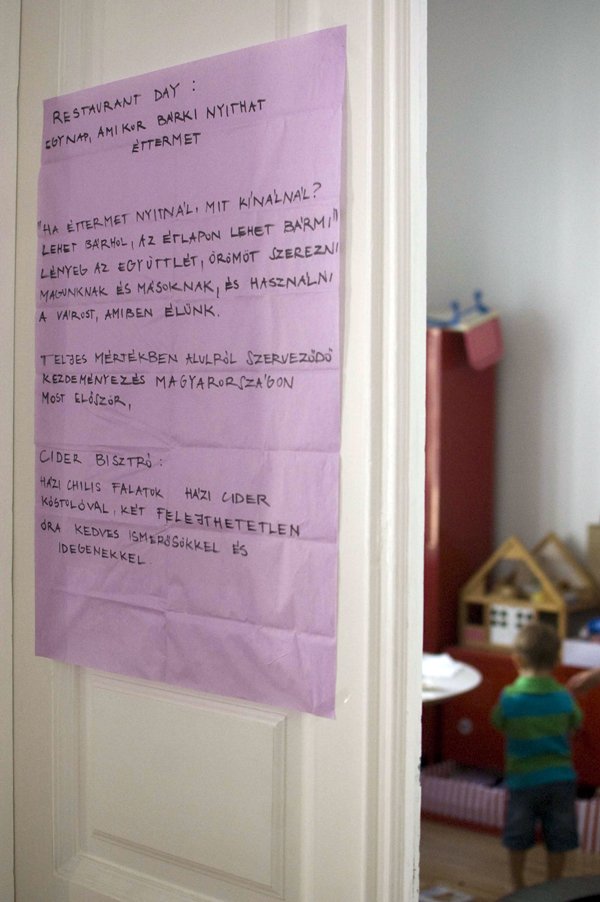 RESTAURANT DAY :
EGY NAP, AMIKOR BÁRKI NYITHAT
ÉTTERMET
"HA ÉTTERMET NYITNÁL, MIT KÍNÁLNÁL?
LEHET BÁRHOL, AZ ÉTLAPON LEHET BÁRMI"
LÉNYEG AZ EGYÜTTLÉT, ÖRÖMÖT SZEREZNI
MAGUNKNAK ÉS MÁSOKNAK, ÉS HASZNÁLNI
A VÁROST, AMIBEN ÉLÜNK.
TELJES MÉRTÉKBEN ALULRÓL SZERVEZŐDŐ
KEZDEMÉNYEZÉS MAGYARORSZÁGON
MOST ELŐSZÖR,
CIDER BISZTRÓ :
HÁZI CHILIS FALATOK HÁZI CIDER
KÓSTOLÓVAL, KÉT FELEJTHETETLEN
ÓRA KEDVES ISMERŐSÖKKEL ÉS
IDEGENEKKEL.